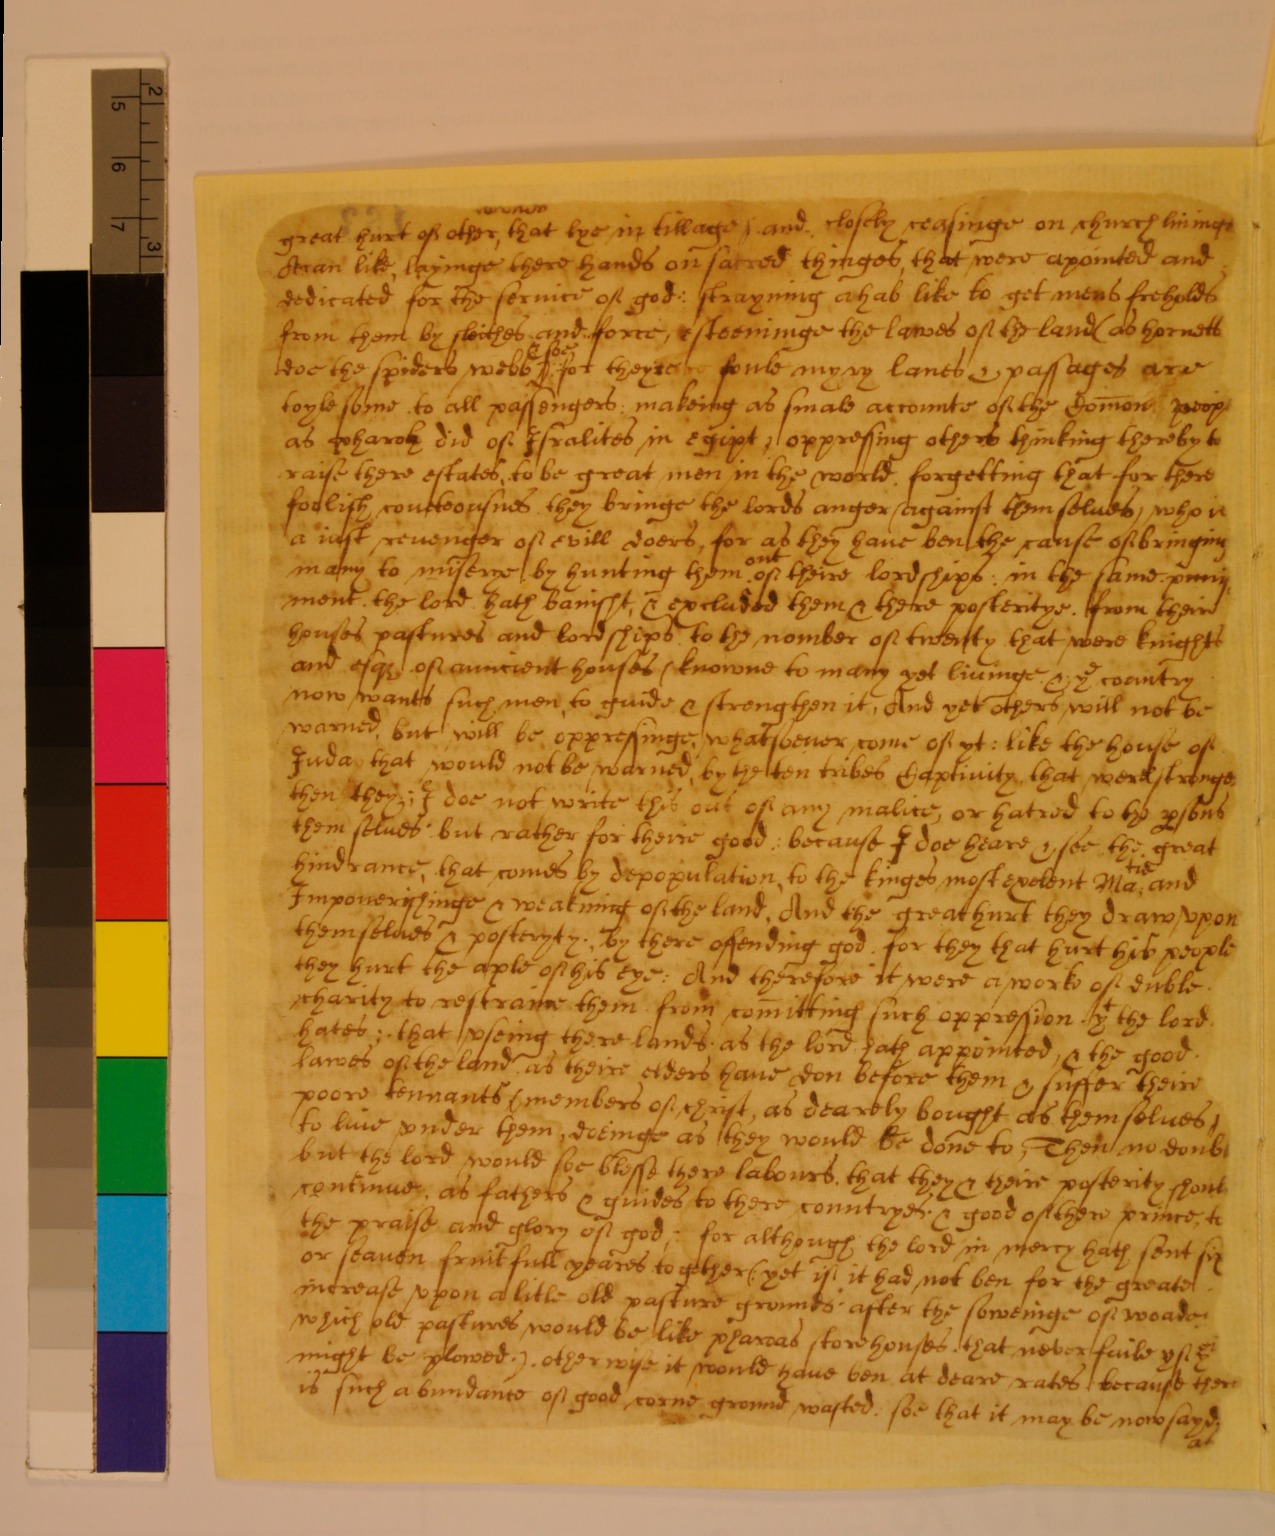 great hurt of other, that lye in tillage) and closely ceasinge on church livinge
Acan like, layinge there hands on sacred thinges, that were apointed and
dedicated for the service of god: strayning ahab like to get mens freholds
from them by sleithes and force, esteeminge the lawes of the land (as hornets
doe the spiders webb) & soe for theyre foule myry lanes & passages are
toylesome to all passengers: makeing as smale accounte of the Com̄on peop
as pharoh did of Isralites in egipt, oppressing others thinking thereby to
raise there estates, to be great men in the world, forgetting that for there
foolish coueteousnes they bringe the lords anger (against themselues) who is
a iust revenger of evill doers, for as they haue ben the cause of bringing
many to miserye by hunting them out of theire lordships: in the same puniʃ
ment the lord hath banisht, & excluded them & there posteritye, from their
houses pastures and lordships to the nomber of twenty that were knights
and esqrs of auncient houses (knowne to many yet livinge & ye countrÿ
now wants such men, to guide & strengthen it, And yet others will not be
warned, but will be oppressinge, whatsoeuer come of yt: like the house of
Juda that would not be warned, by the ten tribes Captivity, that were stronge
then they; I doe not write this out of any malice, or hatred to the psons
them selues but rather for theire good: because I doe heare & see the great
hindrance, that comes by depopulation, to the kinges most exelent Matie: and
Impouerishinge & weakning of the land, And the great hurt they draw vpon
themselues & posteryty, by there offending god for they that hurt his people
they hurt the aple of his eye: And therefore it were a worke of duble
charity to restraine them from com̄itting such oppression yt the lord
hates; that vseing there lands as the lord hath appointed, & the good
lawes of the land as theire elders haue don before them & suffer theire
poore tennants (members of christ, as dearely bought as themselues)
to liue vnder them, doeinge as they would be done to, Then no doubt
but the lord would soe blesse there labours, that they & theire posterity shoul
continue, as fathers & guides to there countryes & good of there prince, to
the praise and glory of god: for although the lord in mercy hath sent six
or seauen fruitfull yeares together (yet if it had not ben for the greate
increase vpon a litle old pasture grounds after the soweinge of woade
which old pastures would be like pharoas storehouses that never faile yf
might be plowed) otherwise it would haue ben at deare rates because ther
is such abundance of good corne ground wasted: soe that it may be now sayd,
at